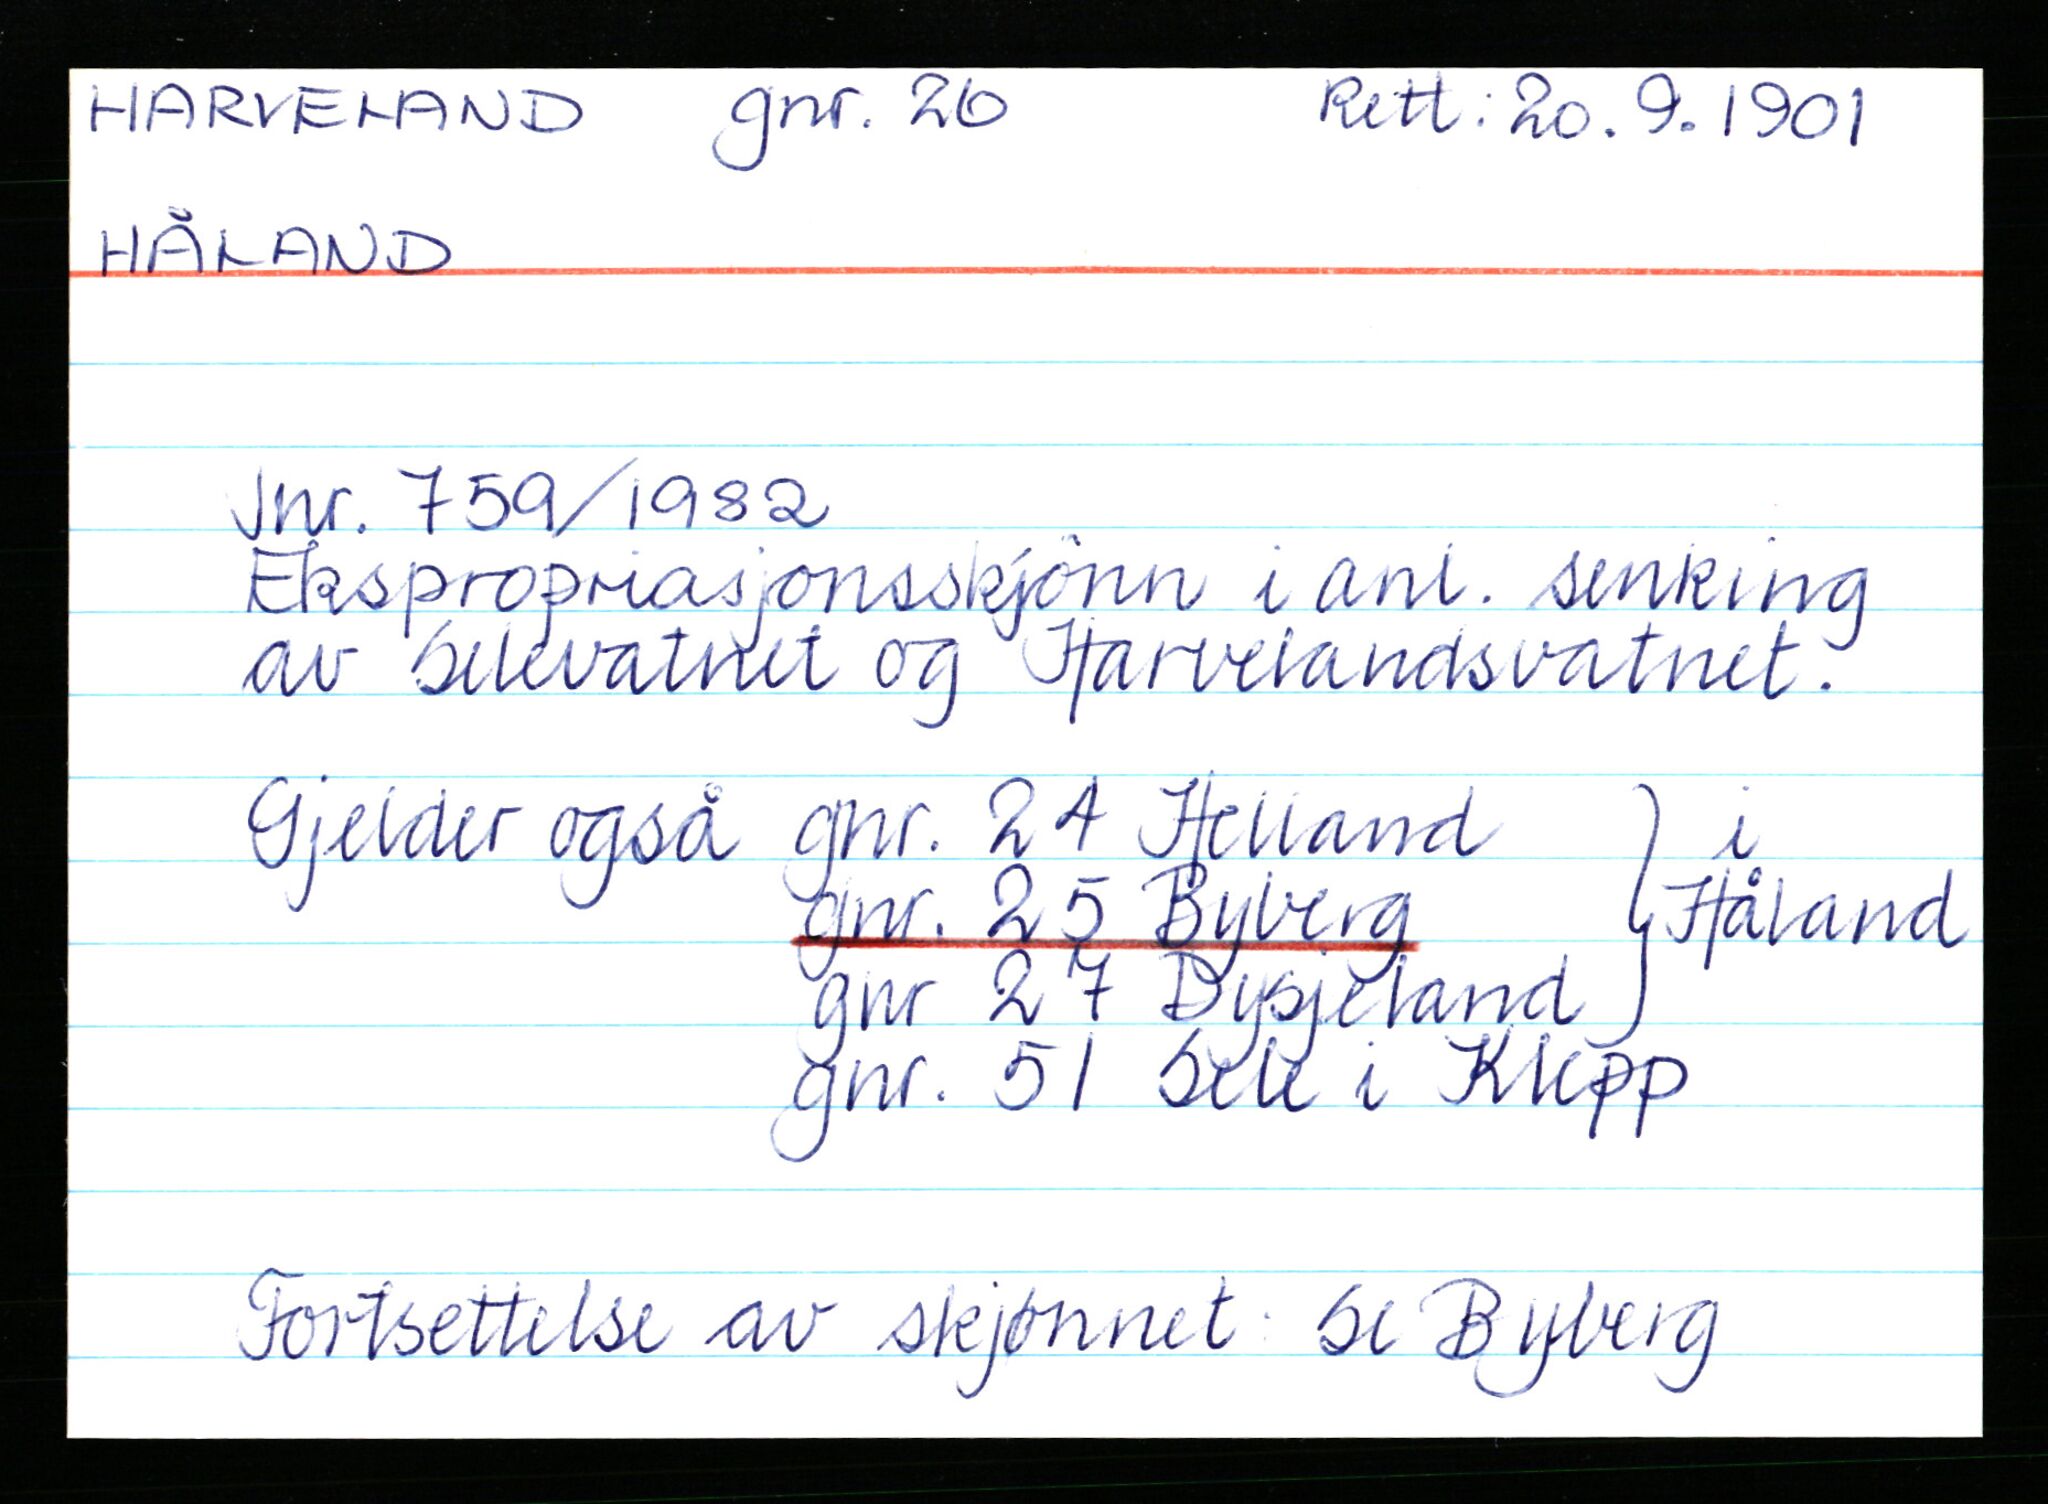 HARVELAND gnr. 26 Rett: 20.9.1901
HÅLAND
Jnr. 759/1982
Ekspropriasjonsskjönn i anl. senking
av Selevatnet og Harvelandsvatnet.
Gjelder også gnr. 24 Helland } i
gnr. 25 Byberg Håland
gnr 27 Dysjeland
gnr. 51 Sele i Klepp
Fortsettelse av skjönnet: Se Byberg